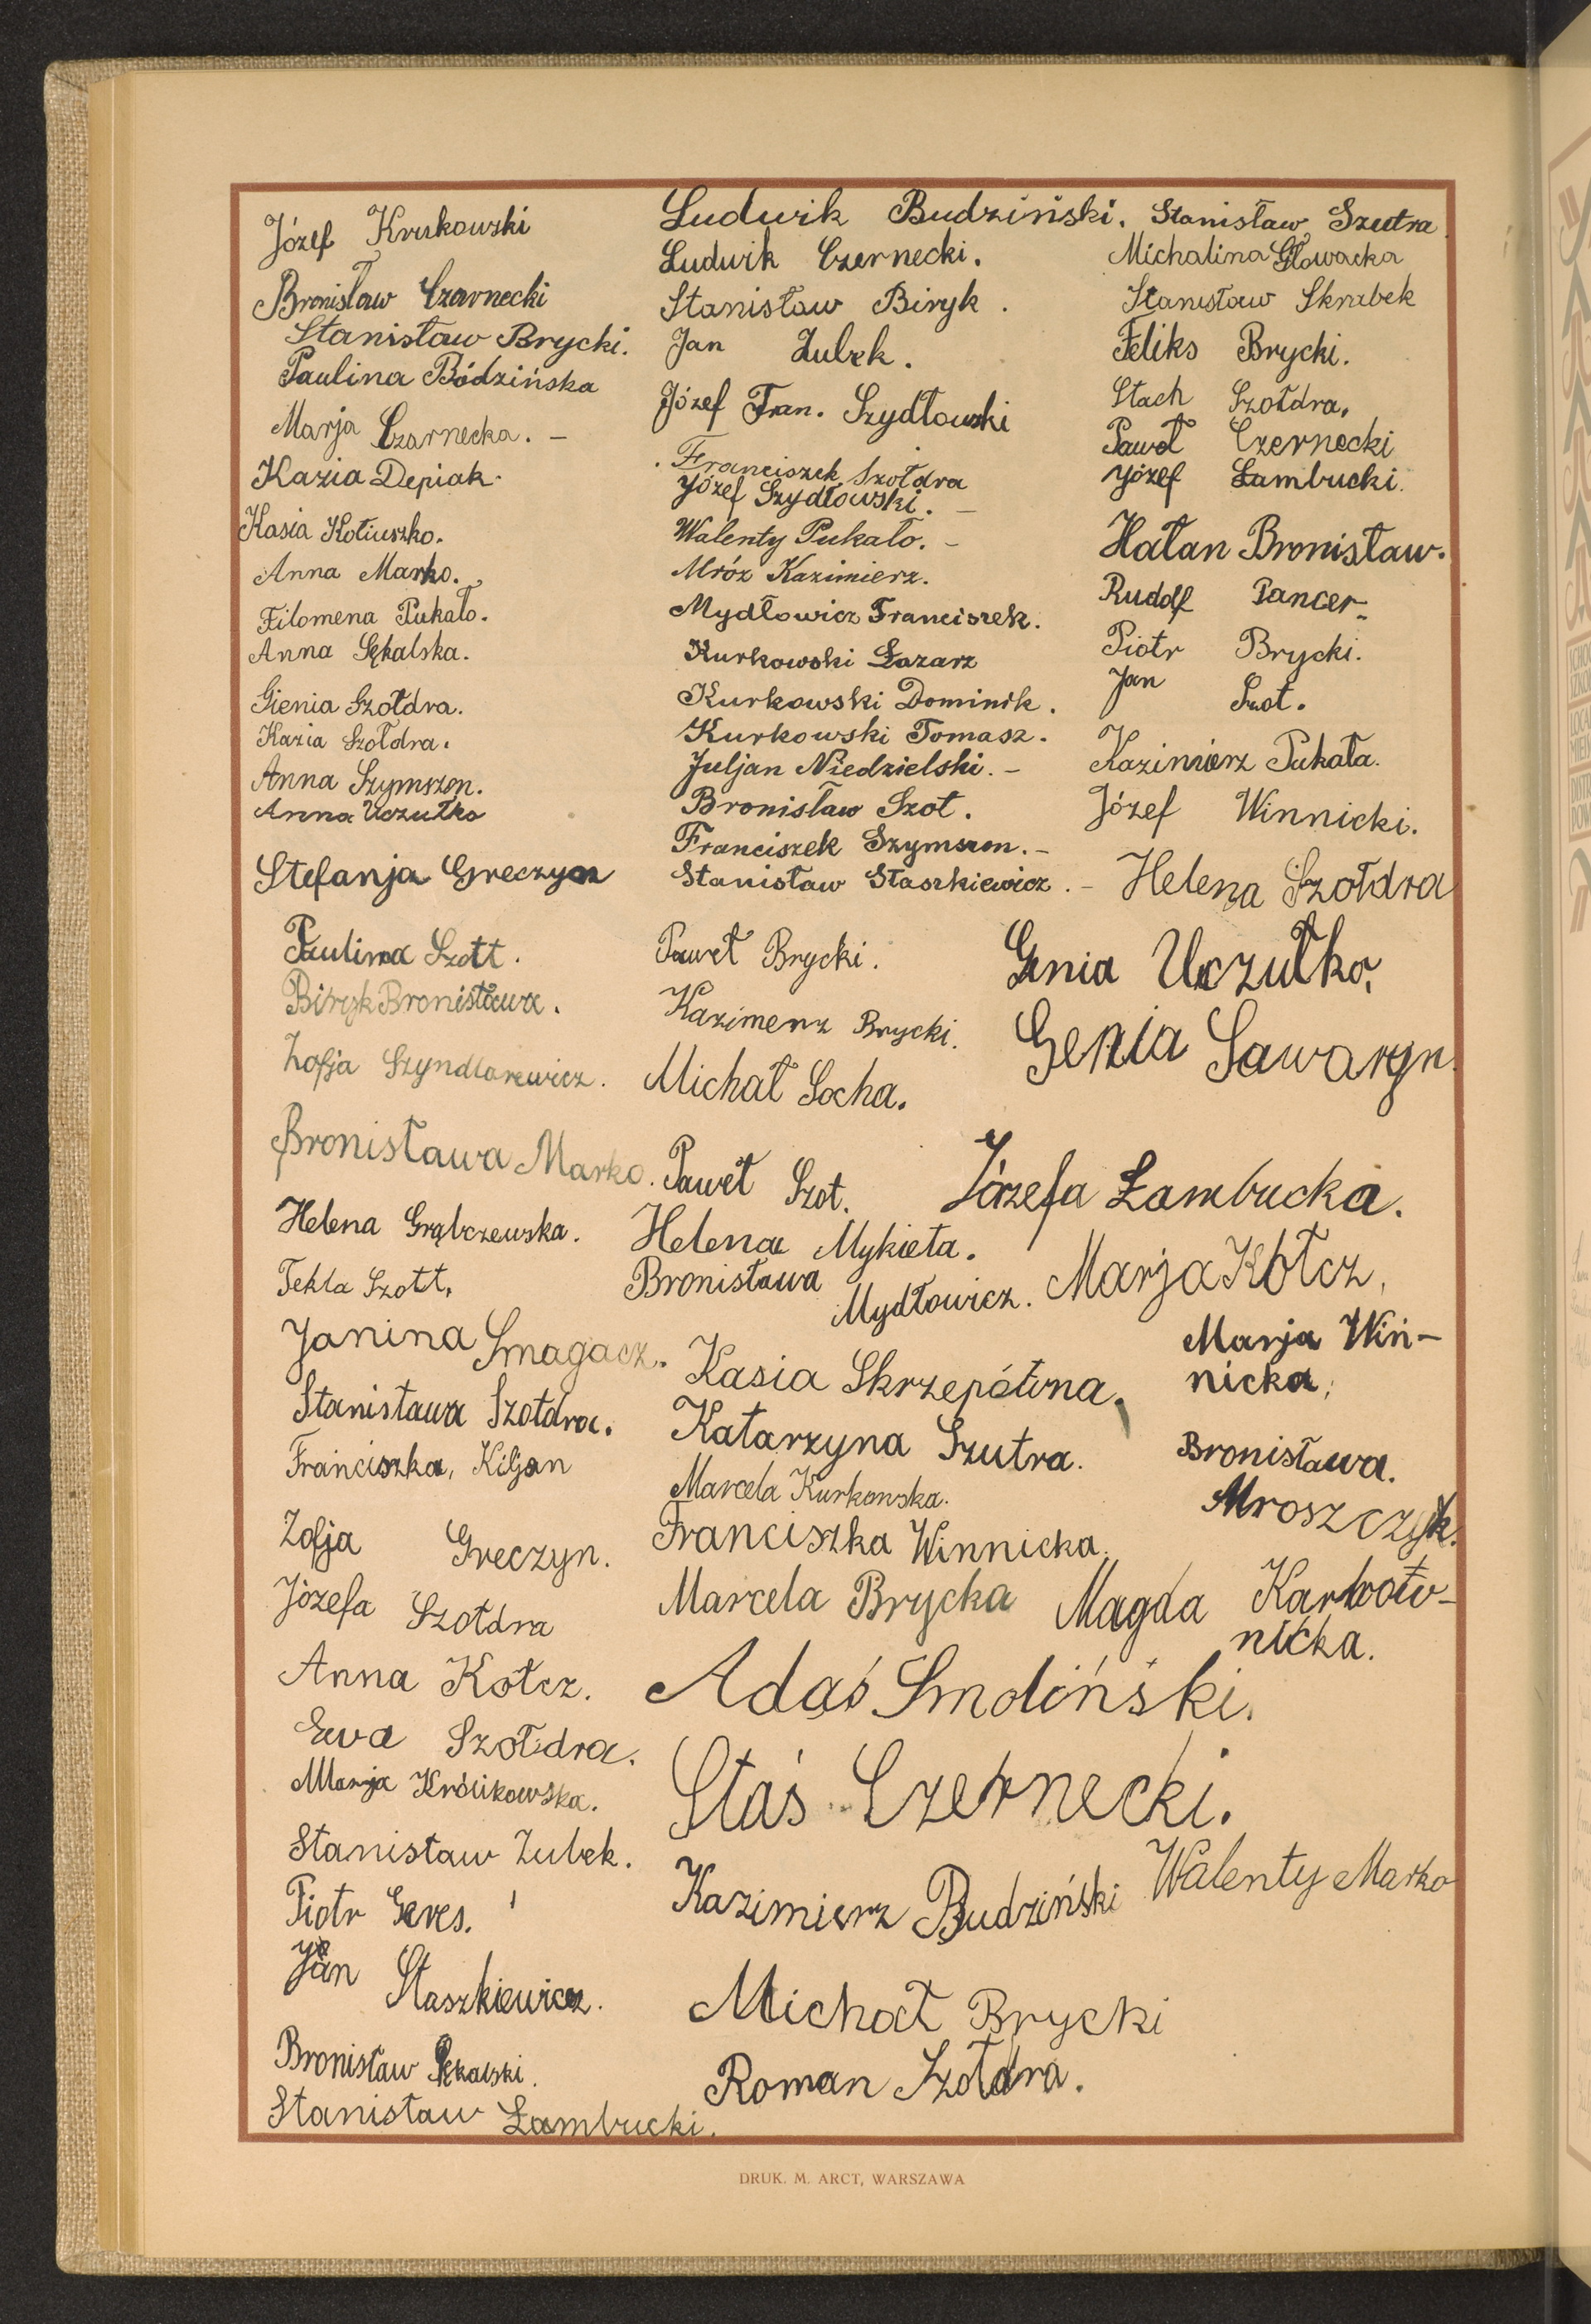 Józef Krukowski
Bronisław Czarnecki
Stanisław Brycki.
Paulina Bódzińska
Marja Czarnecka. –
Kazia Depiak.
Kasia Kotiuszko.
Anna Marko.
Filomena Pukało.
Anna Sękalska.
Gienia Szołdra.
Kazia Szołdra.
Anna Szymszon.
Anna Uczułko
Stefanja Greczyn
Paulina Szott.
Biryk Bronisława.
Zofja Szyndlarewicz.
Bronisława Marko.
Helena Grąbczewska.
Tekla Szott.
Janina Smagacz.
Stanisława Szołdra.
Franciszka, Kiljan
Zofja Greczyn.
Józefa Szołdra
Anna Kołcz.
Ewa Szołdra.
Marja Królikowska.
Stanisław Zubek.
Piotr Geres.
Jan Staszkiewicz.
Bronisław Sękalski.
Stanisław Łambucki.
Ludwik Budziński.
Ludwik Czernecki.
Stanisław Biryk.
Jan Zubek.
Józef Fran. Szydłowski
Franciszek Szołdra
Józef Szydłowski. –
Walenty Pukało. –
Mróz Kazimierz.
Mydłowicz Franciszek.
Kurkowski Łazarz
Kurkowski Dominik.
Kurkowski Tomasz.
Juljan Niedzielski. –
Bronisław Szot.
Franciszek Szymszon. –
Stanisław Staszkiewicz. –
Paweł Brycki.
Kazimerz Brycki.
Michał Socha.
Paweł Szot.
Helena Mykieta.
Bronisława
Mydłowicz.
Kasia Skrzepówna.
Katarzyna Szutra.
Marcela Kurkowska.
Franciszka Winnicka.
Marcela Brycka
Adaś Smoliński.
Staś Czernecki.
Kazimierz Budziński
Michał Brycki
Roman Szołdra.
Stanisław Szutra
Michalina Głowacka
Stanisław Skrabek
Feliks Brycki.
Stach Szołdra.
Paweł Czernecki
Józef Łambucki.
Hałan Bronisław.
Rudolf Pancer.
Piotr Brycki.
Jan Szot.
Kazimierz Pukała.
Józef Winnicki.
Helena Szołdra
Genia Uczułko,
Genia Sawaryn.
Józefa Łambucka.
Marja Kołcz,
Marja Win-
nicka,
Bronisława.
Mroszczyk.
Magda Karwow-
nicka.
Walenty Marko
DRUK. M. ARCT, WARSZAWA